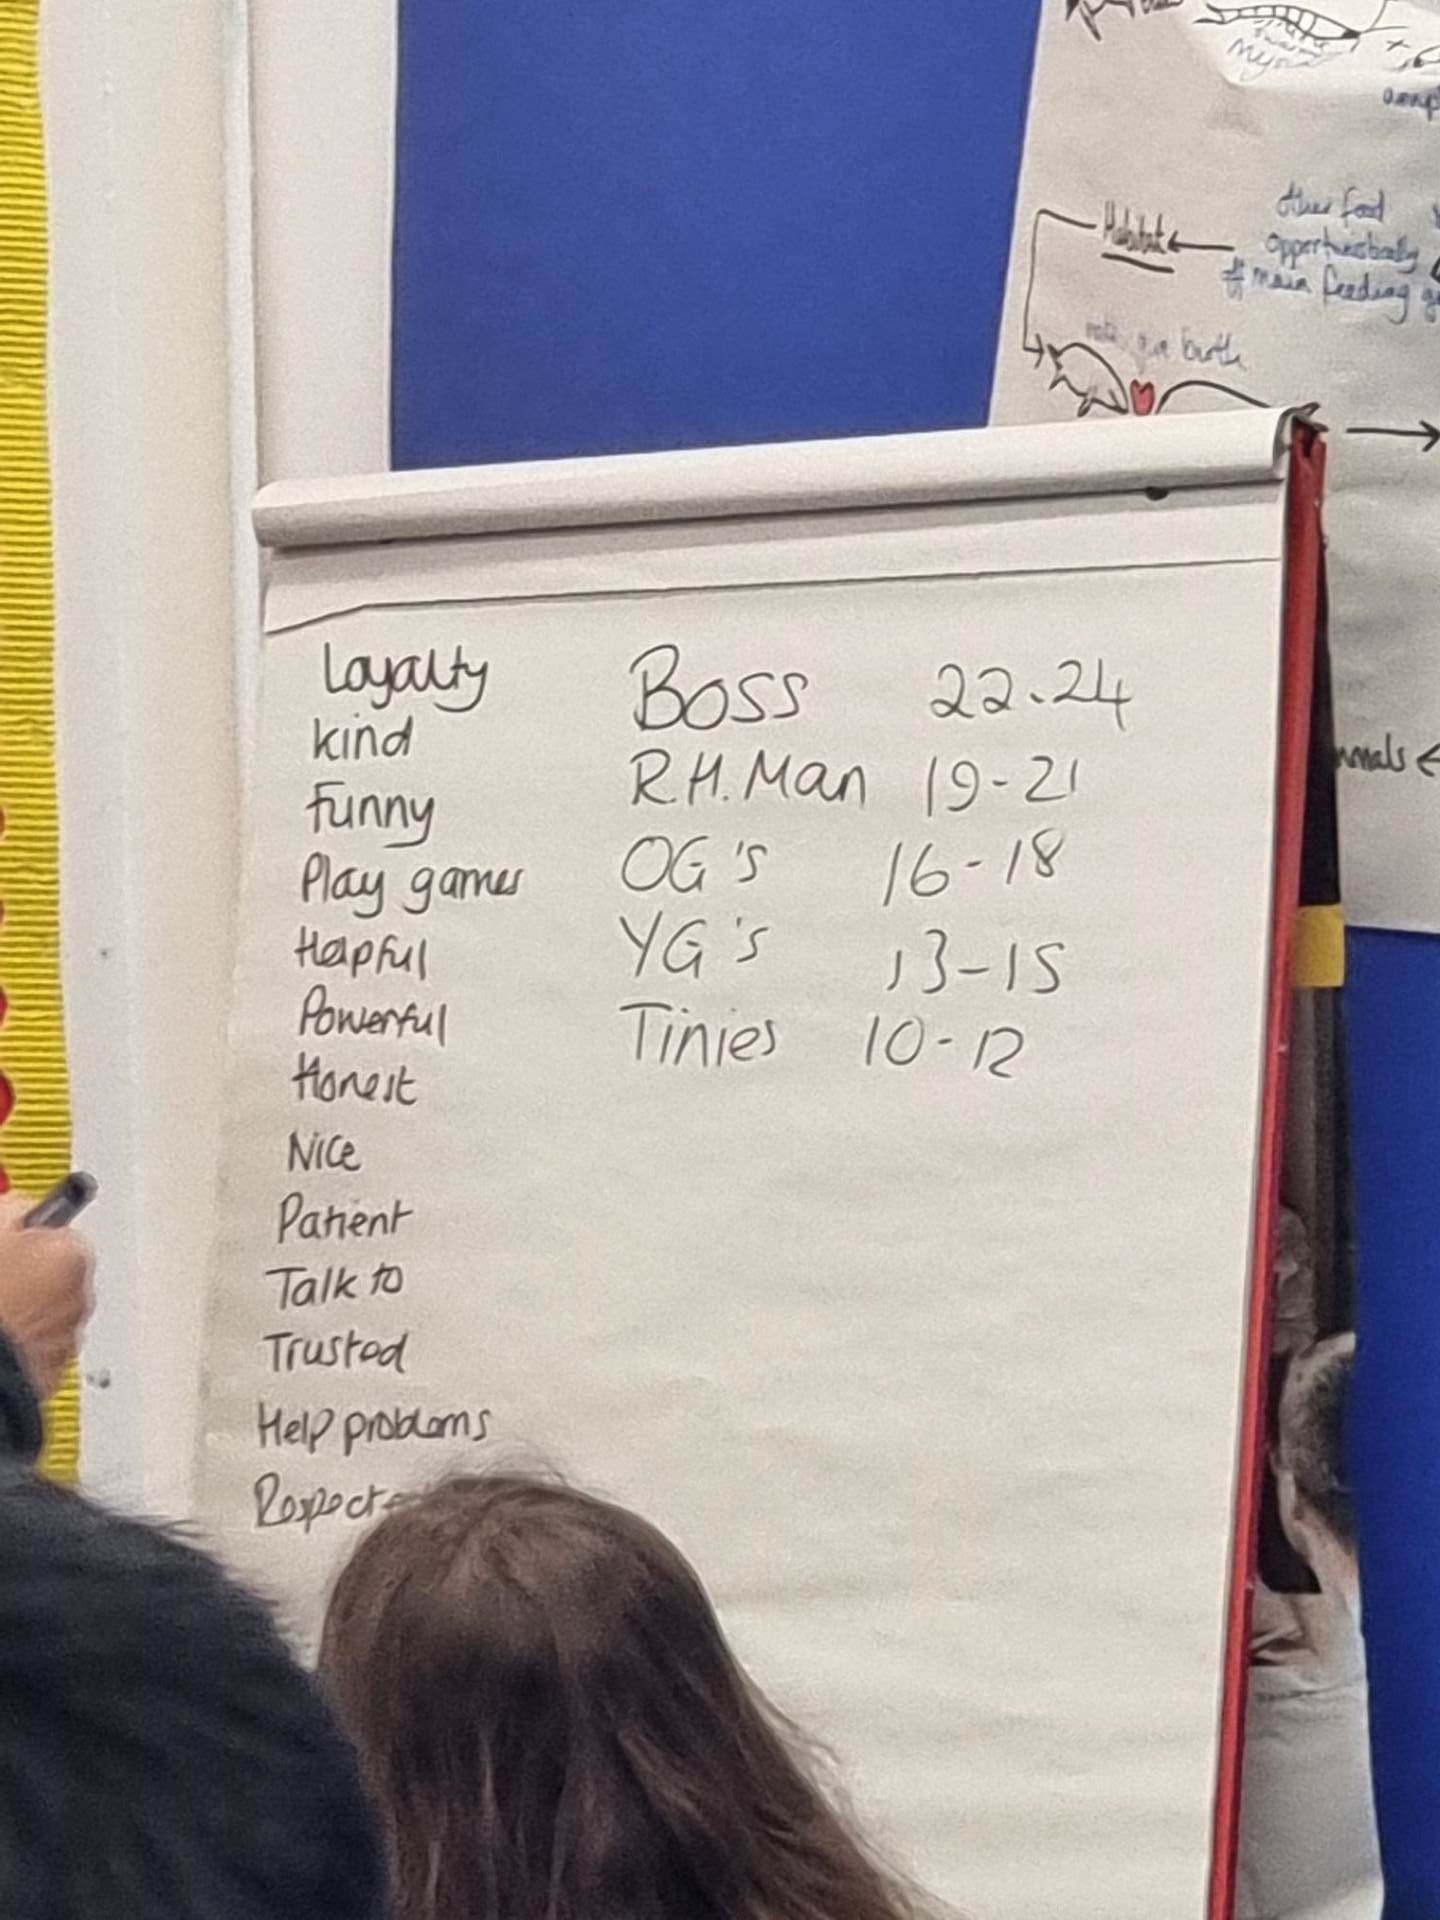 other food
Habitat
opportunistically
main feeding
birth
Loyalty
kind
Funny
Play games
Helpful
Powerful
Honest
Nice
Patient
Talk to
Trusted
Help problems
Respect
Boss 22-24
R.H. Man 19-21
OG's 16-18
YG's 13-15
Tinies 10-12